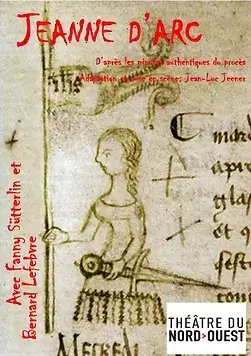 JEANNE D'ARC
D'après les minutes authentiques du procès
Adaptation et mise en scène: Jean-Luc Jeener
Avec Fanny Sutterlin et
Bernard Lefebvre
THÉÂTRE DU
NORD>OUEST